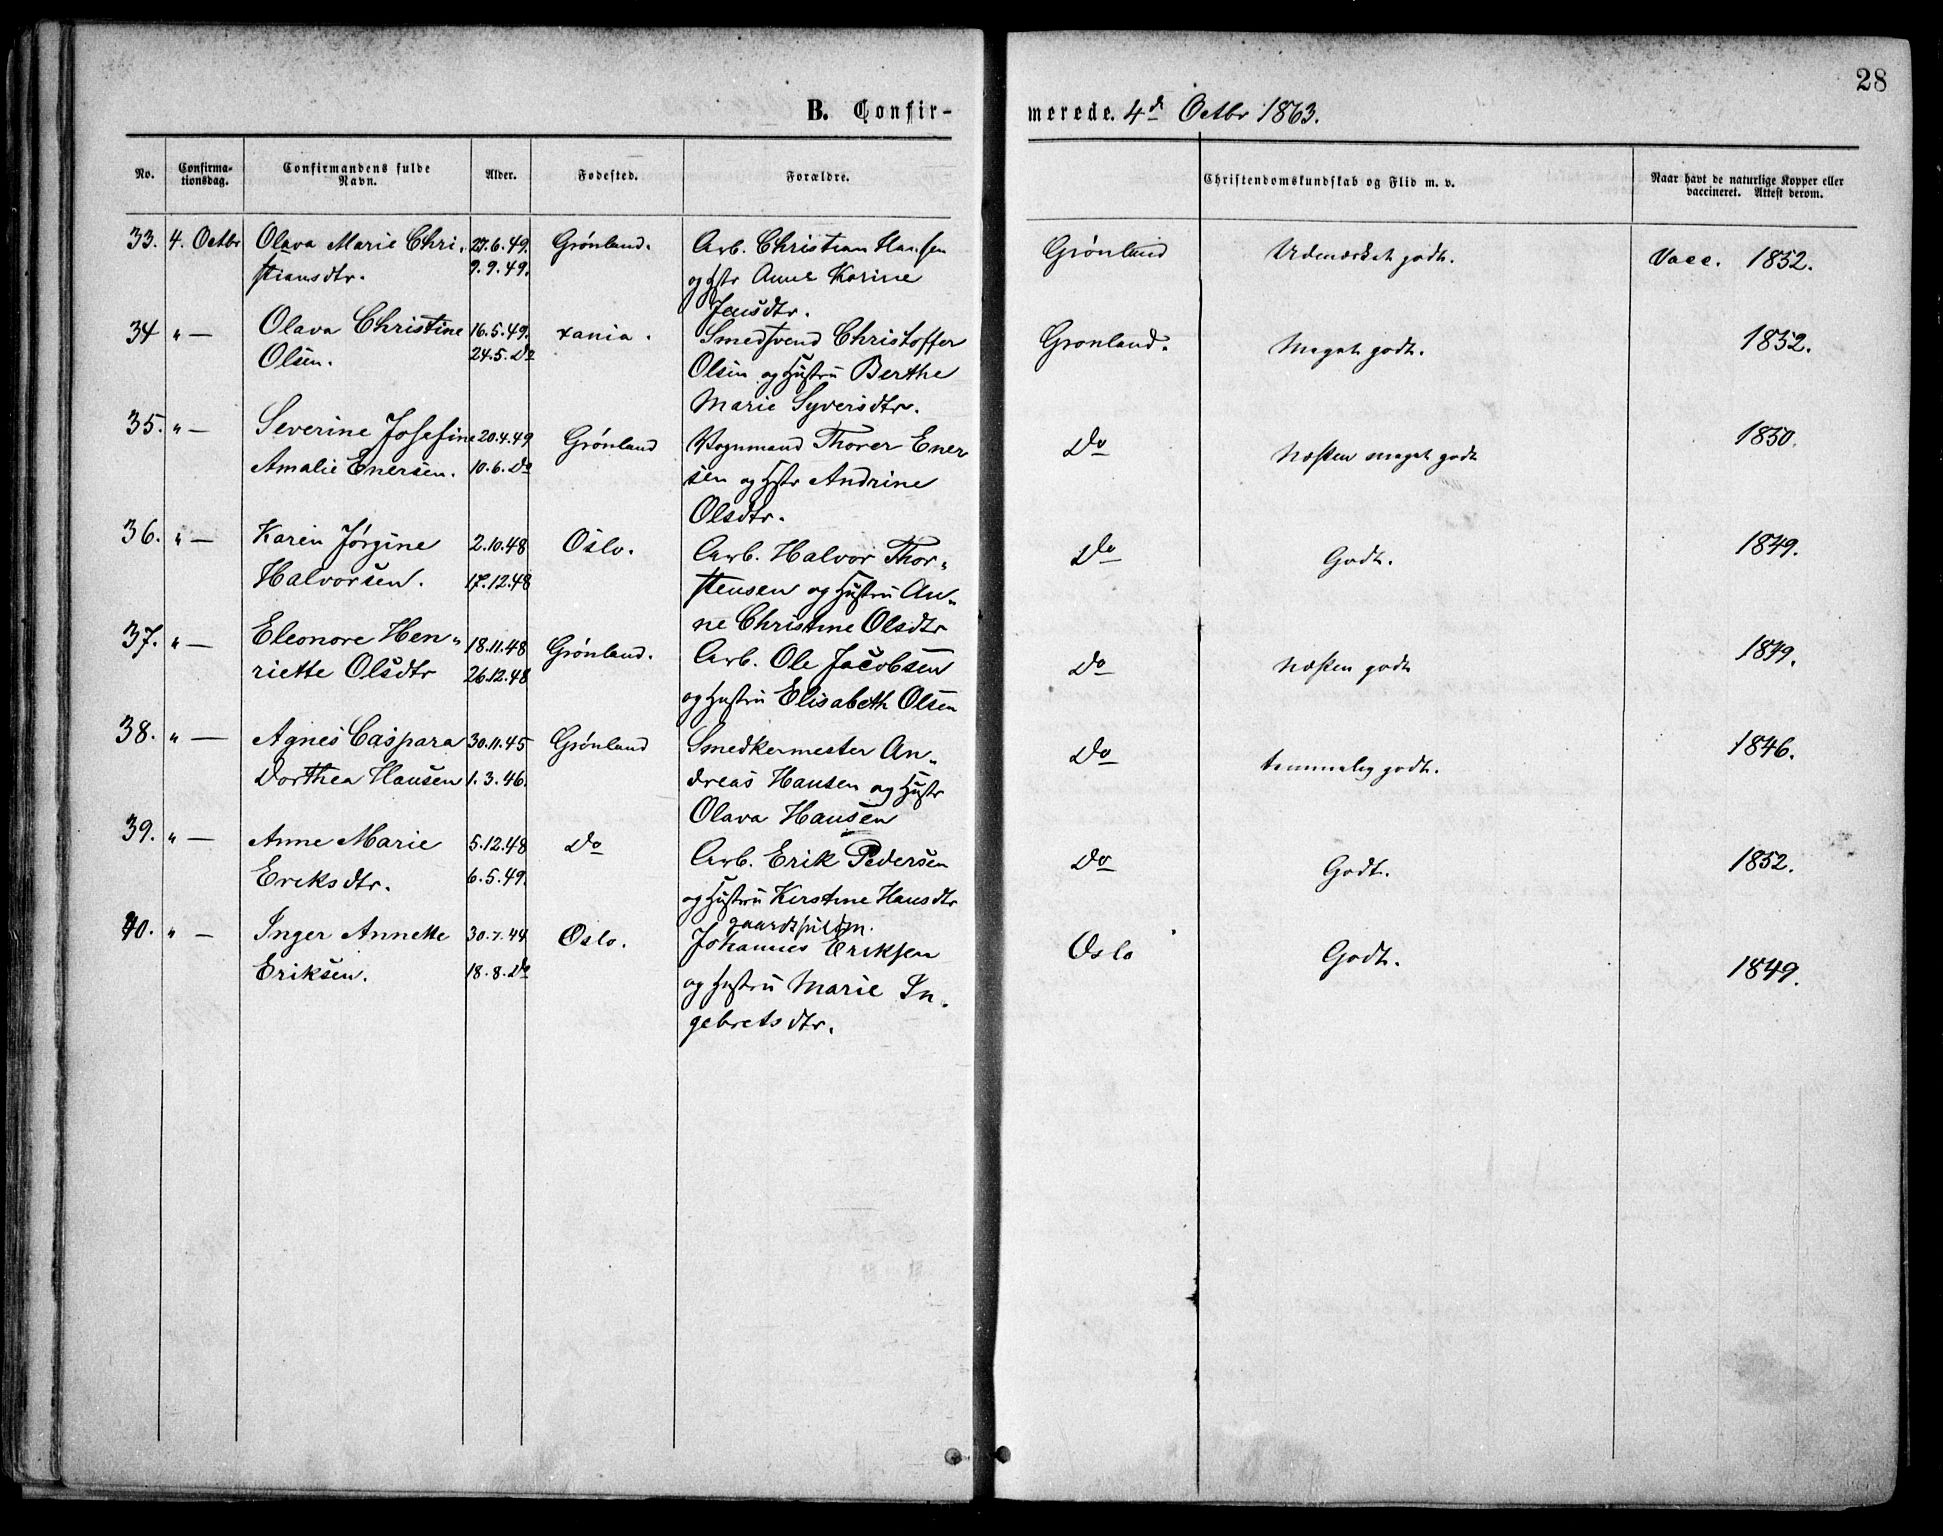 28
B. Confir-
merede. 4de Octbr 1863.
No.
Confirma-
tionsdag.
Confirmandens fulde
Navn.
Alder.
Fødested.
Forældre.
Christendomskundskab og Flid m. v.
Naar havt de naturlige Kopper eller
vaccineret. Attest derom.
33. 4. Octbr Olava Marie Chri- 27.6.49. Grønland. Arb. Christian Hansen Grønland Udmærket godt. Vacc. 1852.
stiansdtr. 9.9.49. og Hstr Anne Karine
Jensdtr.
34 " — Olava Christine 16.5.49. xania. Smedsvend Christoffer Grønland. Meget godt. 1852.
Olsen. 24.5. Do Olsen og Hustru Berthe
Marie Syversdtr.
35. " — Severine Josefine 20.4.49 Grønland Vognmand Thorer Ener Do Næsten meget godt 1850.
Amalie Enersen. 10.6. Do sen og Hstr Andrine
Olsdtr.
36. " — Karen Jørgine 2.10.48 Oslo. Arb. Halvor Thor- Do Godt. 1849.
Halvorsen. 17.12.48 stensen og Hustru An-
ne Christine Olsdtr
37. " — Eleonore Hen- 18.11.48 Grønland. Arb. Ole Jacobsen Do Næsten godt 1849.
riette Olsdtr 26.12.48 og Hustru Elisabeth Olsen
38. " — Agnes Caspara 30.11.45 Grønland Smedkermester An- Do temmelig godt. 1846.
Dorthea Hansen 1.3.46. dreas Hansen og Hustr
Olava Hansen
39. " — Anne Marie 5.12.48 Do Arb. Erik Pedersen Do Godt. 1852.
Ericksdtr. 6.5.49. og Hustru Kirstine Hansdtr
40. " — Inger Annette 30.7.44 Oslo. Johannes Eriksen Oslo Godt. 1849.
Eriksen. 18.8. Do og Hustru Marie In-
gebretsdtr.